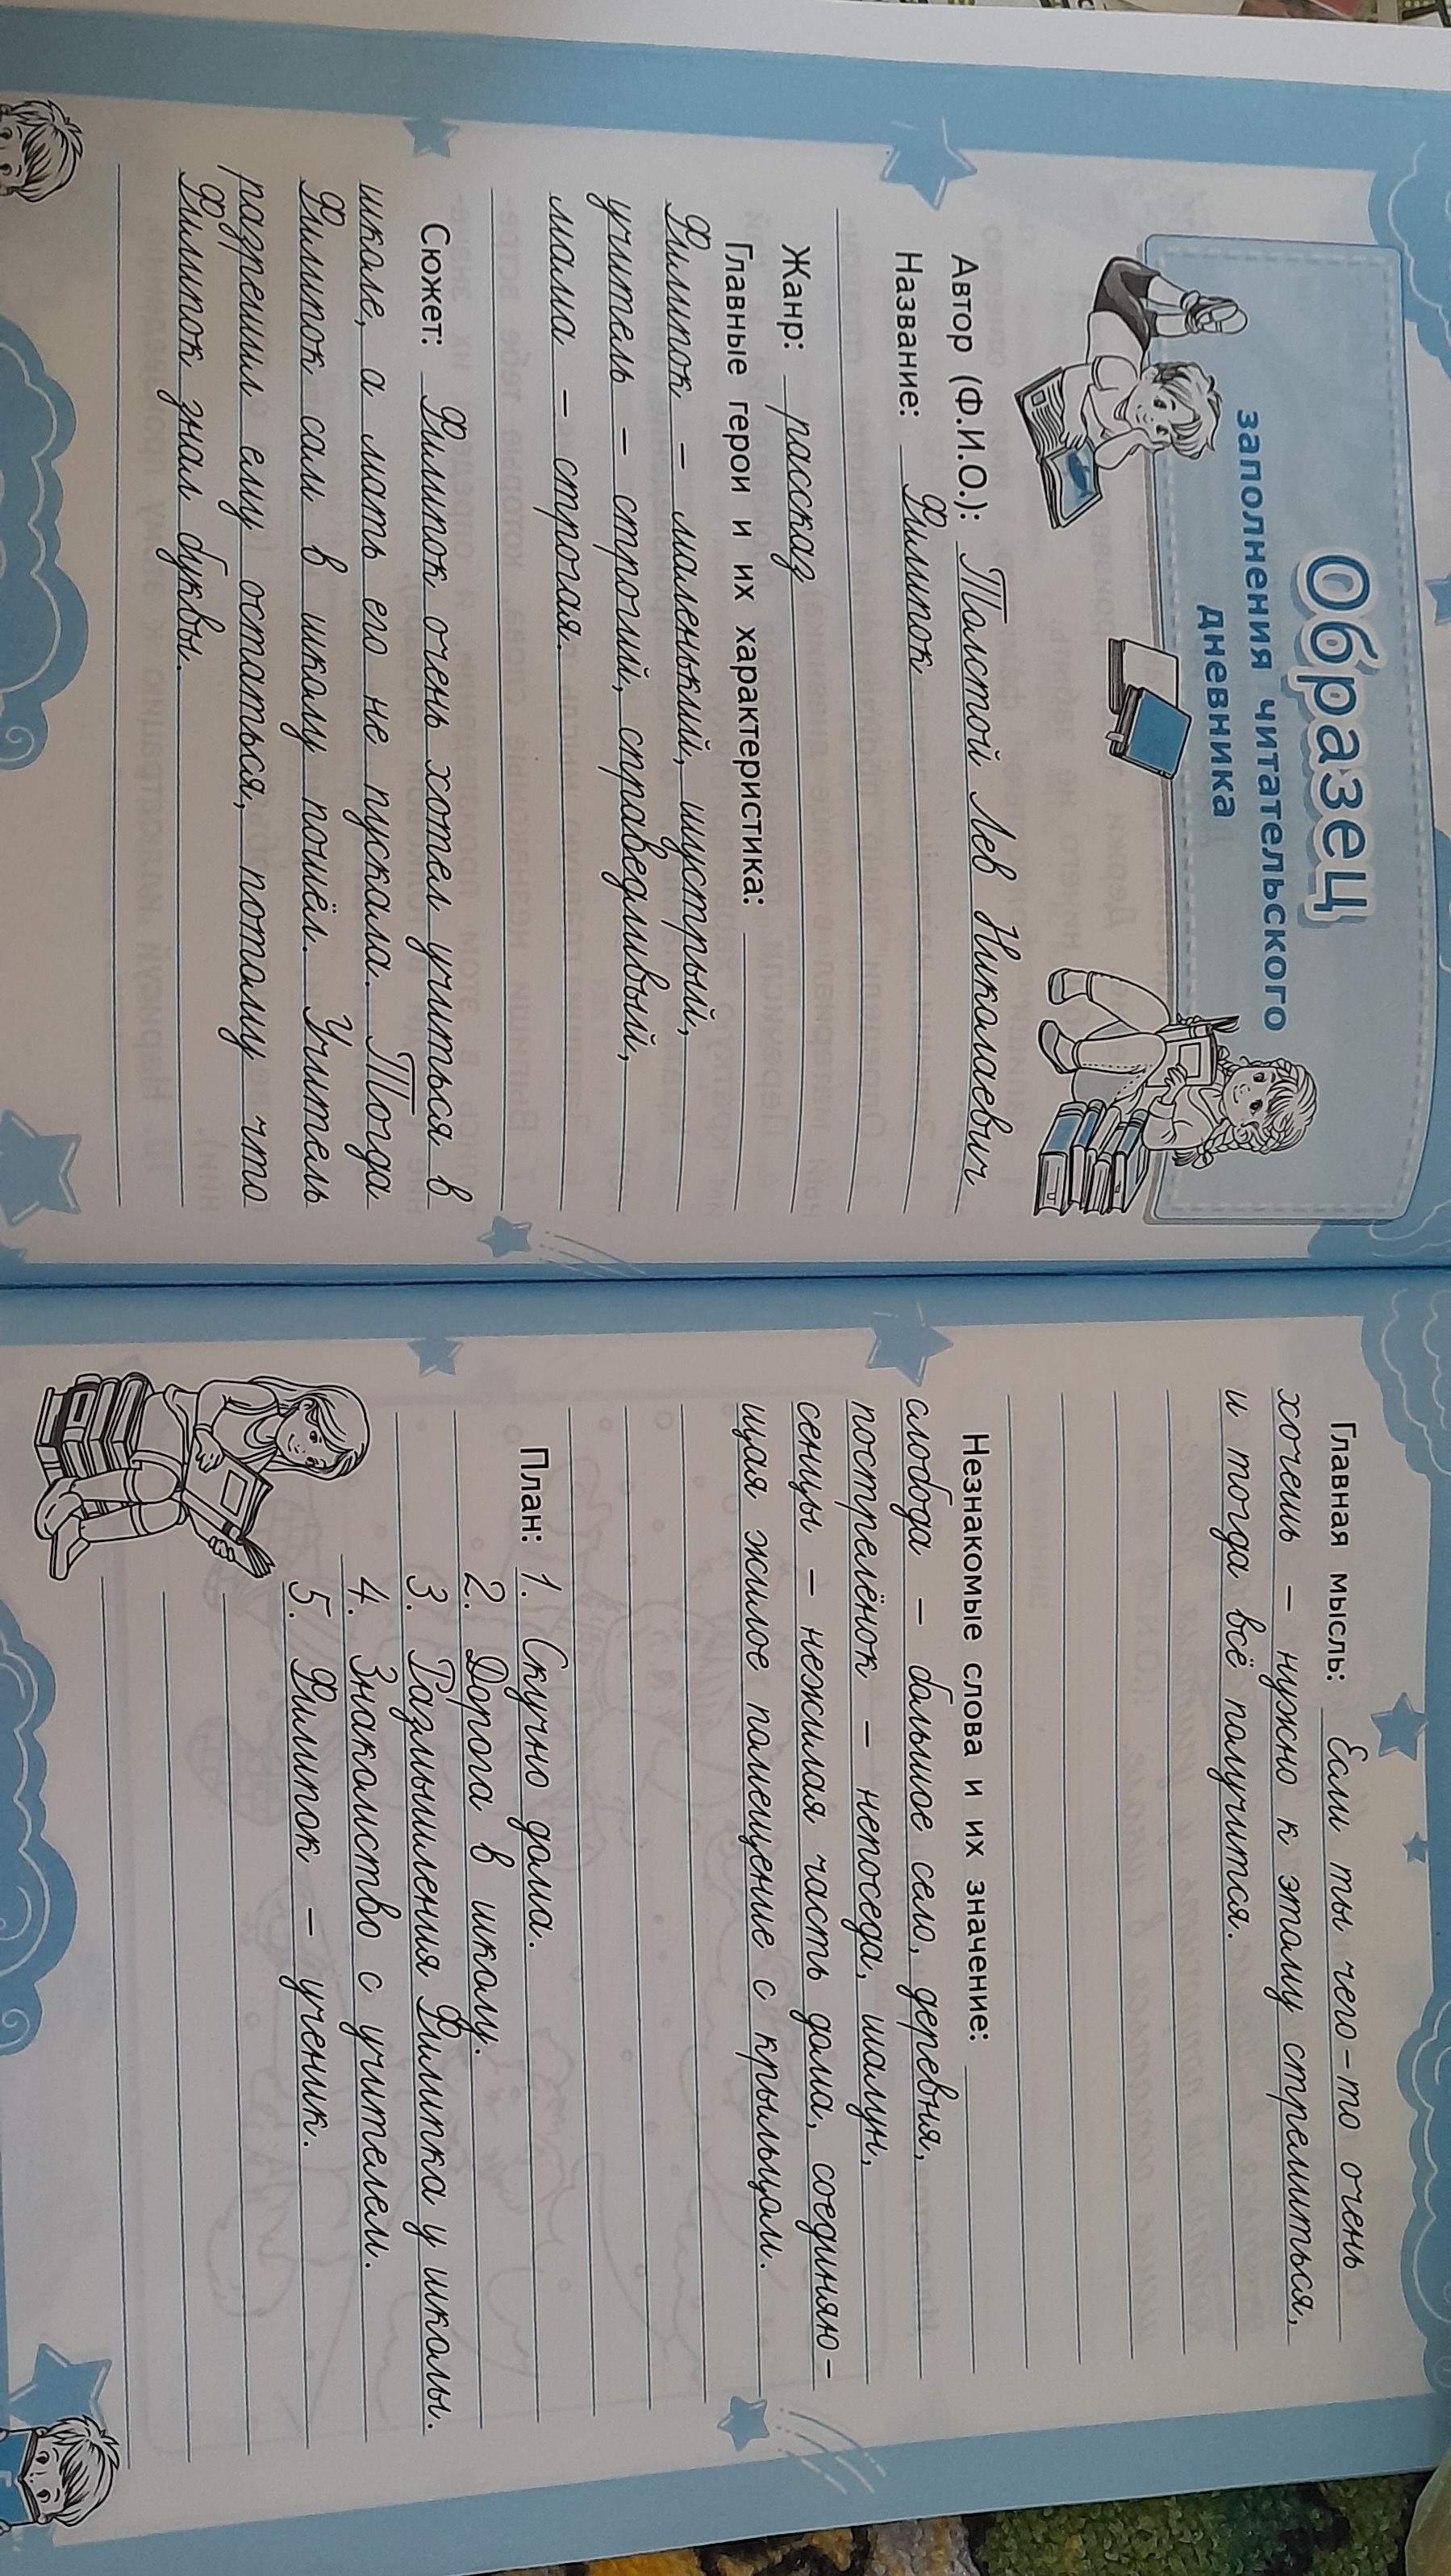 Образец
заполнения читательского
дневника
Автор (Ф.И.О.): Толстой Лев Николаевич
Название: Филипок
Жанр: рассказ
Главные герои и их характеристика:
Филипок – маленький, шустрый,
учитель – строгий, справедливый,
мама – строгая.
Сюжет: Филипок очень хотел учиться в
школе, а мать его не пускала. Тогда
Филипок сам в школу пошёл. Учитель
разрешил ему остаться, потому что
Филипок знал буквы.
Главная мысль: Если ты чего-то очень
хочешь – нужно к этому стремиться,
и тогда всё получится.
Незнакомые слова и их значение:
слобода – большое село, деревня,
пострелёнок – непоседа, шалун,
сенцы – нежилая часть дома, соединяю-
щая жилое помещение с крыльцом.
План: 1. Скучно дома.
2. Дорога в школу.
3. Размышления Филипка у школы.
4. Знакомство с учителем.
5. Филипок – ученик.